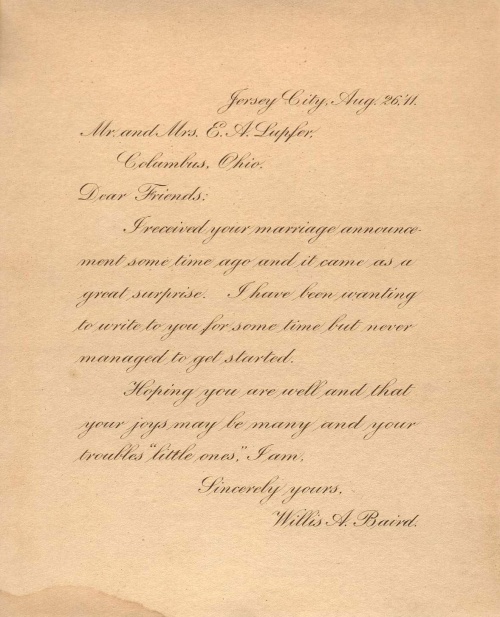 Jersey City, Aug. 26,'11.
Mr. and Mrs. E. A. Lupfer,
Columbus, Ohio.
Dear Friends:
I received your marriage announce-
ment some time ago and it came as a
great surprise. I have been wanting
to write to you for some time but never
managed to get started.
Hoping you are well and that
your joys may be many and your
troubles "little ones," I am,
Sincerely yours,
Willis A. Baird.